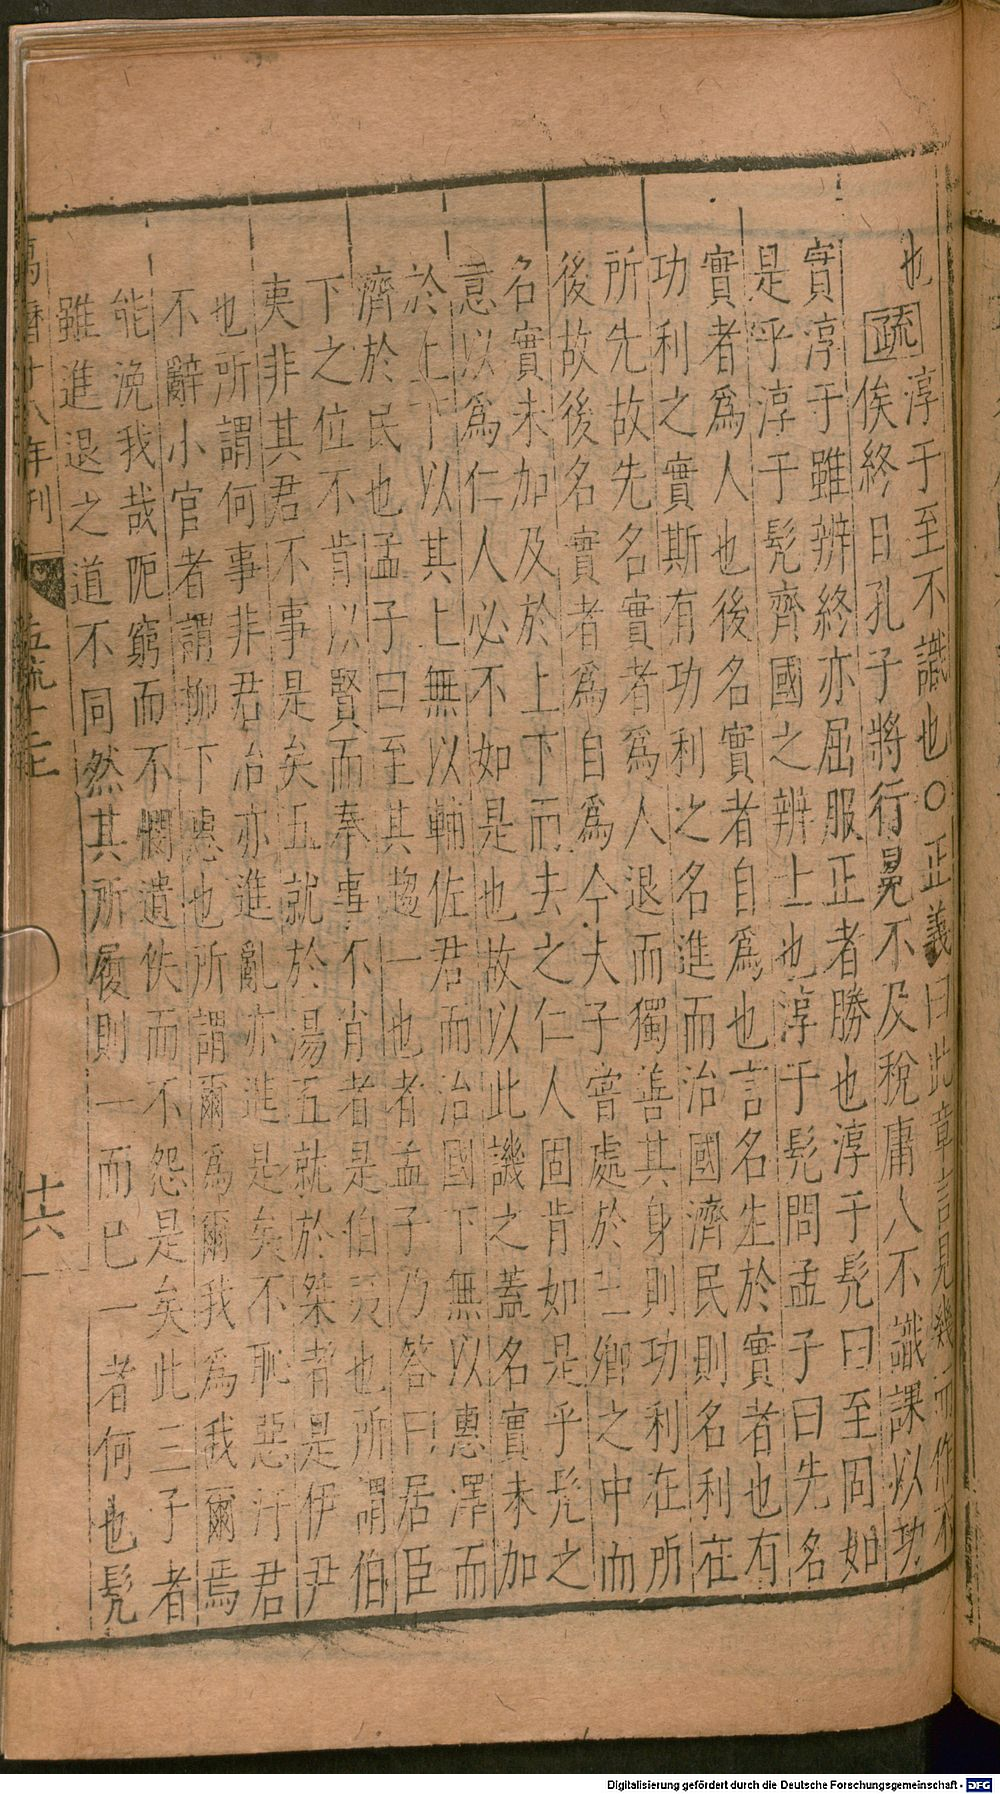 也疏淳于至不識也○正義曰此章言見幾而作不
俟終日孔子將行冕不及稅庸人不識課以功
實淳于雖辨終亦屈服正者勝也淳于髡曰至固如
是乎淳于髡齊國之辨士也淳于髡問孟子曰先名
實者爲人也後名實者自爲也言名生於實者也有
功利之實斯有功利之名進而治國濟民則名利在
所先故先名實者爲人退而獨善其身則功利在所
後故後名實者爲自爲今夫子嘗處於三卿之中而
名實未加及於上下而去之仁人固肯如是乎髡之
意以爲仁人必不如是也故以此譏之蓋名實未加
於上下以其上無以輔佐君而治國下無以惠澤而
濟於民也孟子曰至其趨一也者孟子乃答曰居臣
下之位不肯以賢而奉事不肖者是伯夷也所謂伯
夷非其君不事是矣五就於湯五就於桀者是伊尹
也所謂何事非君治亦進亂亦進是矣不恥惡汙君
不辭小官者謂柳下惠也所謂爾爲爾我爲我爾焉
能浼我哉阨窮而不憫遺佚而不怨是矣此三子者
雖進退之道不同然其所履則一而已一者何也髡
萬曆十八年刊
十六
Digitalisierung gefördert durch die Deutsche Forschungsgemeinschaft - DFG